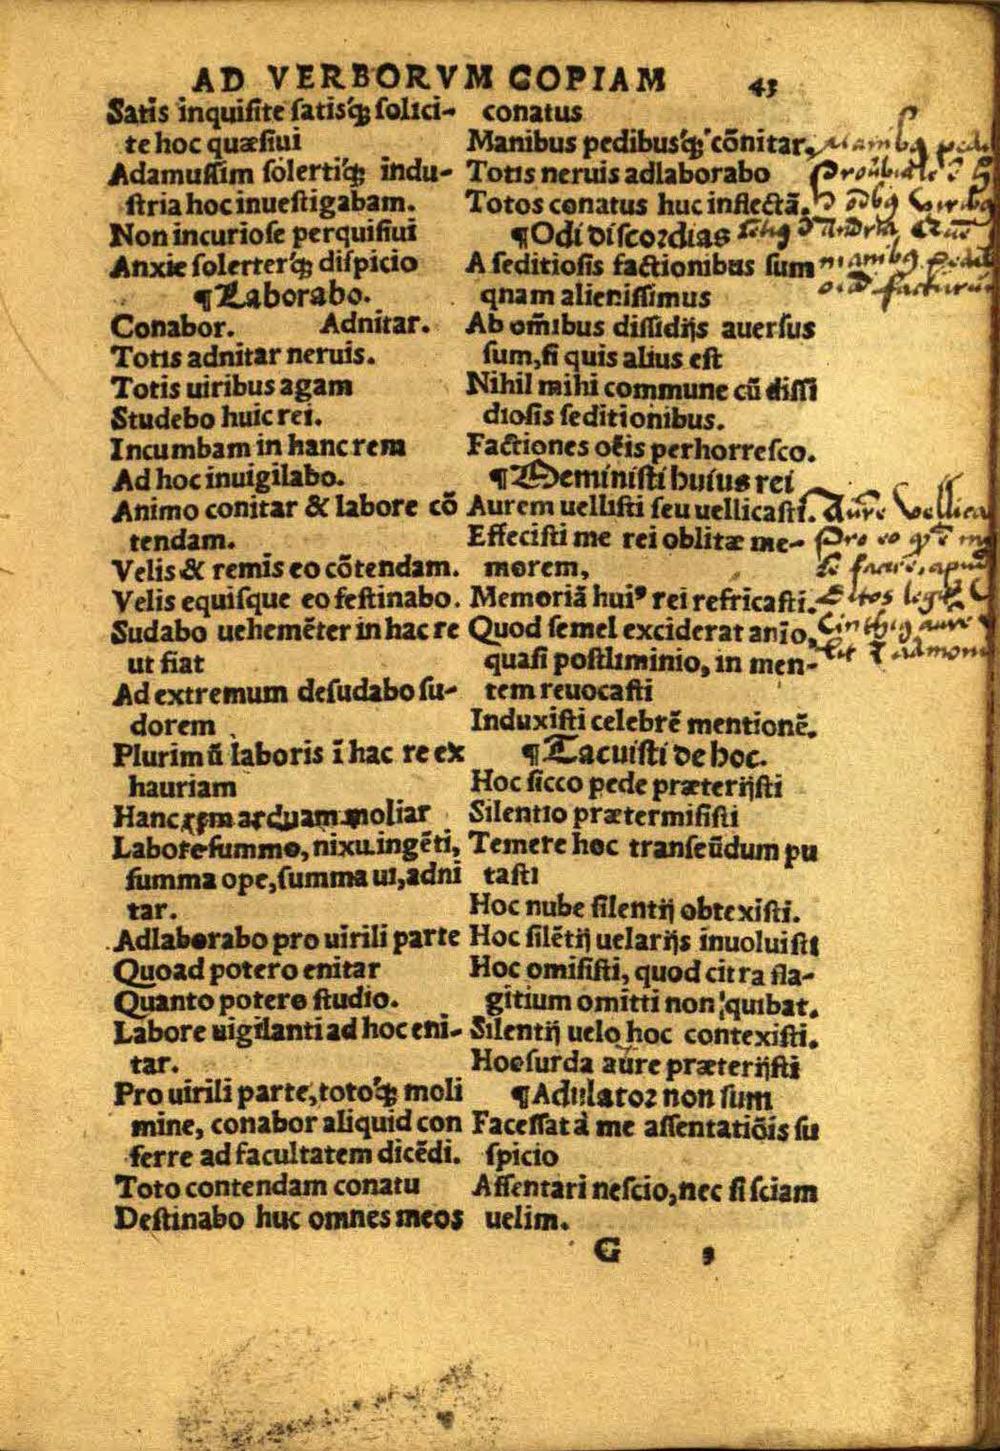 AD VERBORVM COPIAM 43
Satis inquiſite ſatisq́ꝫ ſolici-
te hoc quæſiui
Adamuſſim ſolertiq́ꝫ indu-
ſtria hoc inueſtigabam.
Non incurioſe perquiſiui
Anxie ſolerterq́ꝫ diſpicio
¶Laborabo.
Conabor. Adnitar.
Totis adnitar neruis.
Totis uiribus agam
Studebo huic rei.
Incumbam in hanc rem
Ad hoc inuigilabo.
Animo conitar & labore cõ
tendam.
Velis & remis eo cõtendam.
Velis equiſque eo feſtinabo.
Sudabo uehemẽter in hac re
ut fiat
Ad extremum deſudabo ſu-
dorem
Plurimũ laboris ĩ hac re ex
hauriam
Hanc rem arduam moliar
Labore ſummo, nixu ingẽti,
ſumma ope, ſumma ui, adni
tar.
Adlaborabo pro uirili parte
Quoad potero enitar
Quanto potero ſtudio.
Labore uigilanti ad hoc eni-
tar.
Pro uirili parte, totoq́ꝫ moli
mine, conabor aliquid con
ferre ad facultatem dicẽdi.
Toto contendam conatu
Deſtinabo huc omnes meos
conatus
Manibus pedibusq́ꝫ cõnitar.
Totis neruis adlaborabo
Totos conatus huc inflectã.
¶Odi diſcordias
A ſeditioſis factionibus ſum
qnam alieniſſimus
Ab om̃ibus diſſidijs auerſus
ſum, ſi quis alius eſt
Nihil mihi commune cũ diſſi
dioſis ſeditionibus.
Factiones oẽis perhorreſco.
¶Meminiſti huius rei
Aurem uelliſti ſeu uellicaſti.
Effeciſti me rei oblitæ me-
morem,
Memoriã huiꝰ rei refricaſti.
Quod ſemel exciderat anĩo,
quaſi poſtliminio, in men-
tem reuocaſti
Induxiſti celebrẽ mentionẽ.
¶Tacuiſti de hoc.
Hoc ſicco pede præterijſti
Silentio prætermiſiſti
Temere hoc tranſeũdum pu
taſti
Hoc nube ſilentij obtexiſti.
Hoc ſilẽtij uelarijs inuoluiſti
Hoc omiſiſti, quod citra fla-
gitium omitti non quibat.
Silentij uelo hoc contexiſti.
Hoc ſurda aure præterijſti
¶Adulator non ſum
Faceſſat à me aſſentatiõis ſu
ſpicio
Aſſentari neſcio, nec ſi ſciam
uelim.
G